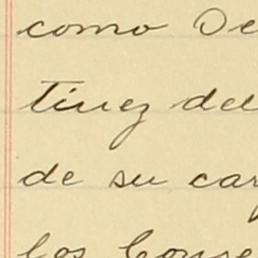 como De
tinez del
de su car
los Conse